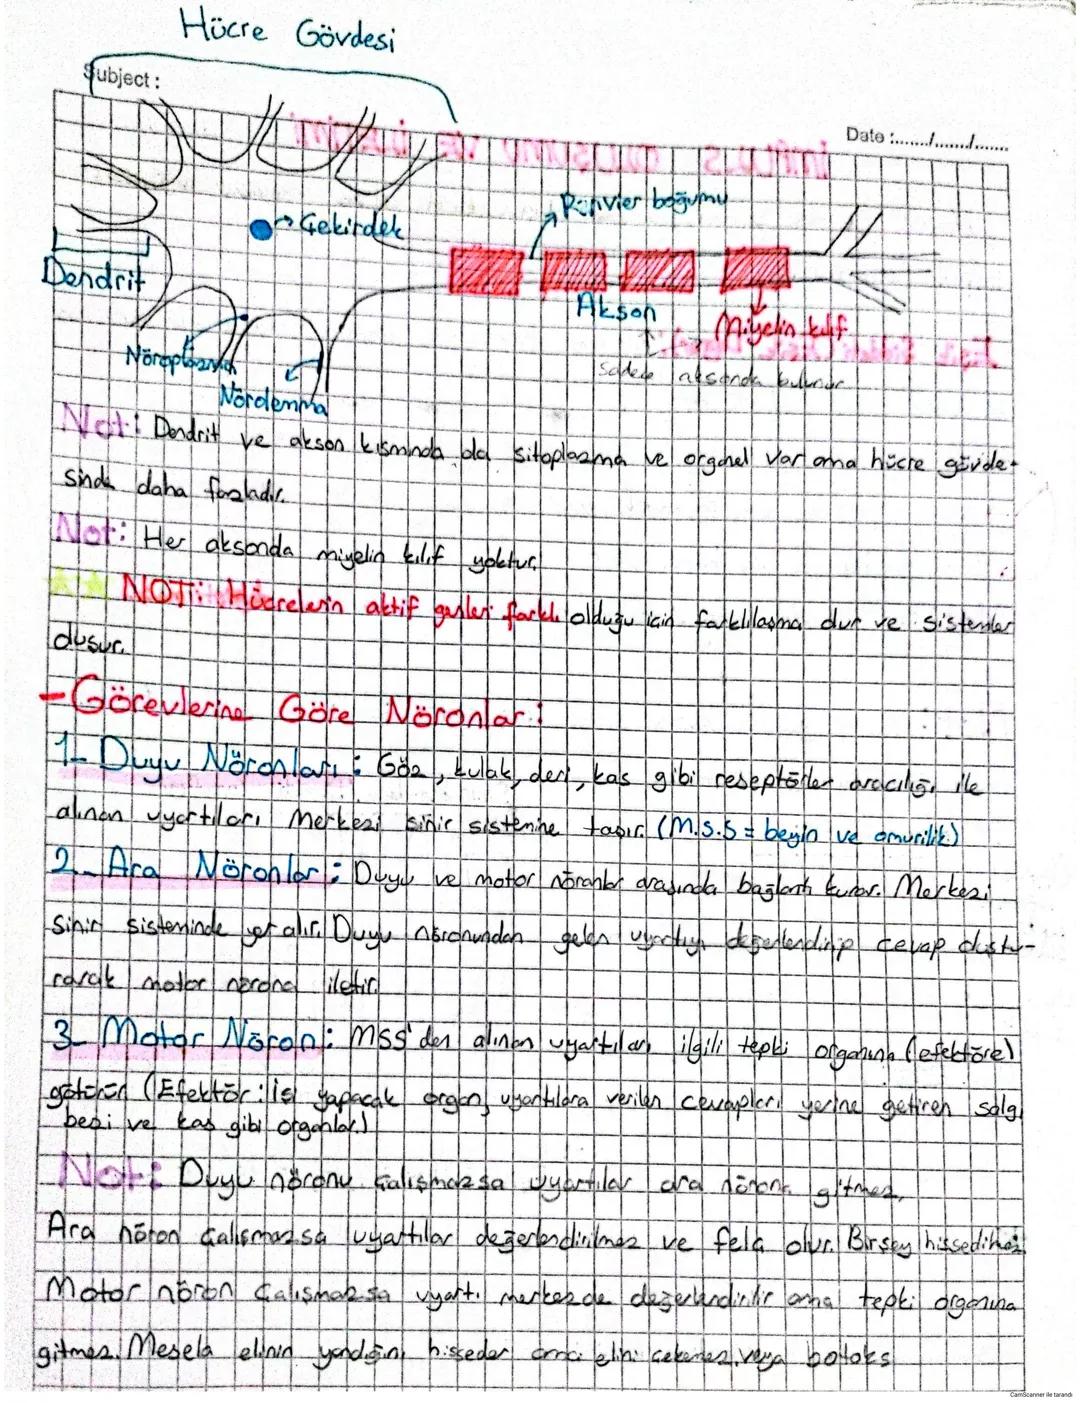 Hücre Gövdesi
Subject:
Date :......../......../........
Ranvier boğumu
Çekirdek
Dendrit
Akson
Miyelin kılıf
sadece aksonda bulunur
Nöroplazma
Nörolemma
Not: Dendrit ve akson kısmında da sitoplazma ve organel var ama hücre gövde-
sinde daha fazladır.
Not: Her aksonda miyelin kılıf yoktur.
NOT: Hücrelerin aktif genleri farklı olduğu için farklılaşma olur ve sistemler
oluşur.
- Görevlerine Göre Nöronlar:
1- Duyu Nöronları: Göz, kulak, deri, kas gibi reseptörler aracılığı ile
alınan uyartıları Merkezi sinir sistemine taşır. (M.S.S = beyin ve omurilik)
2- Ara Nöronlar: Duyu ve motor nöronlar arasında bağlantı kurar. Merkezi
sinir sisteminde yer alır. Duyu nöronundan gelen uyartıyı değerlendirip cevap oluştu-
rarak motor nörona iletir.
3- Motor Nöron: MSS'den alınan uyartıları ilgili tepki organına (efektöre)
götürür (Efektör: işi yapacak organ, uyartılara verilen cevapları yerine getiren salgı
bezi ve kas gibi organlar.)
Not: Duyu nöronu çalışmazsa uyartılar ara nörona gitmez.
Ara nöron çalışmazsa uyartılar değerlendirilmez ve felç olur. Birşey hissedilmez
Motor nöron çalışmazsa uyartı merkezde değerlendirilir ama tepki organına
gitmez. Mesela elinin yandığını hisseder ama elini çekemez. veya botoks
CamScanner ile tarandı